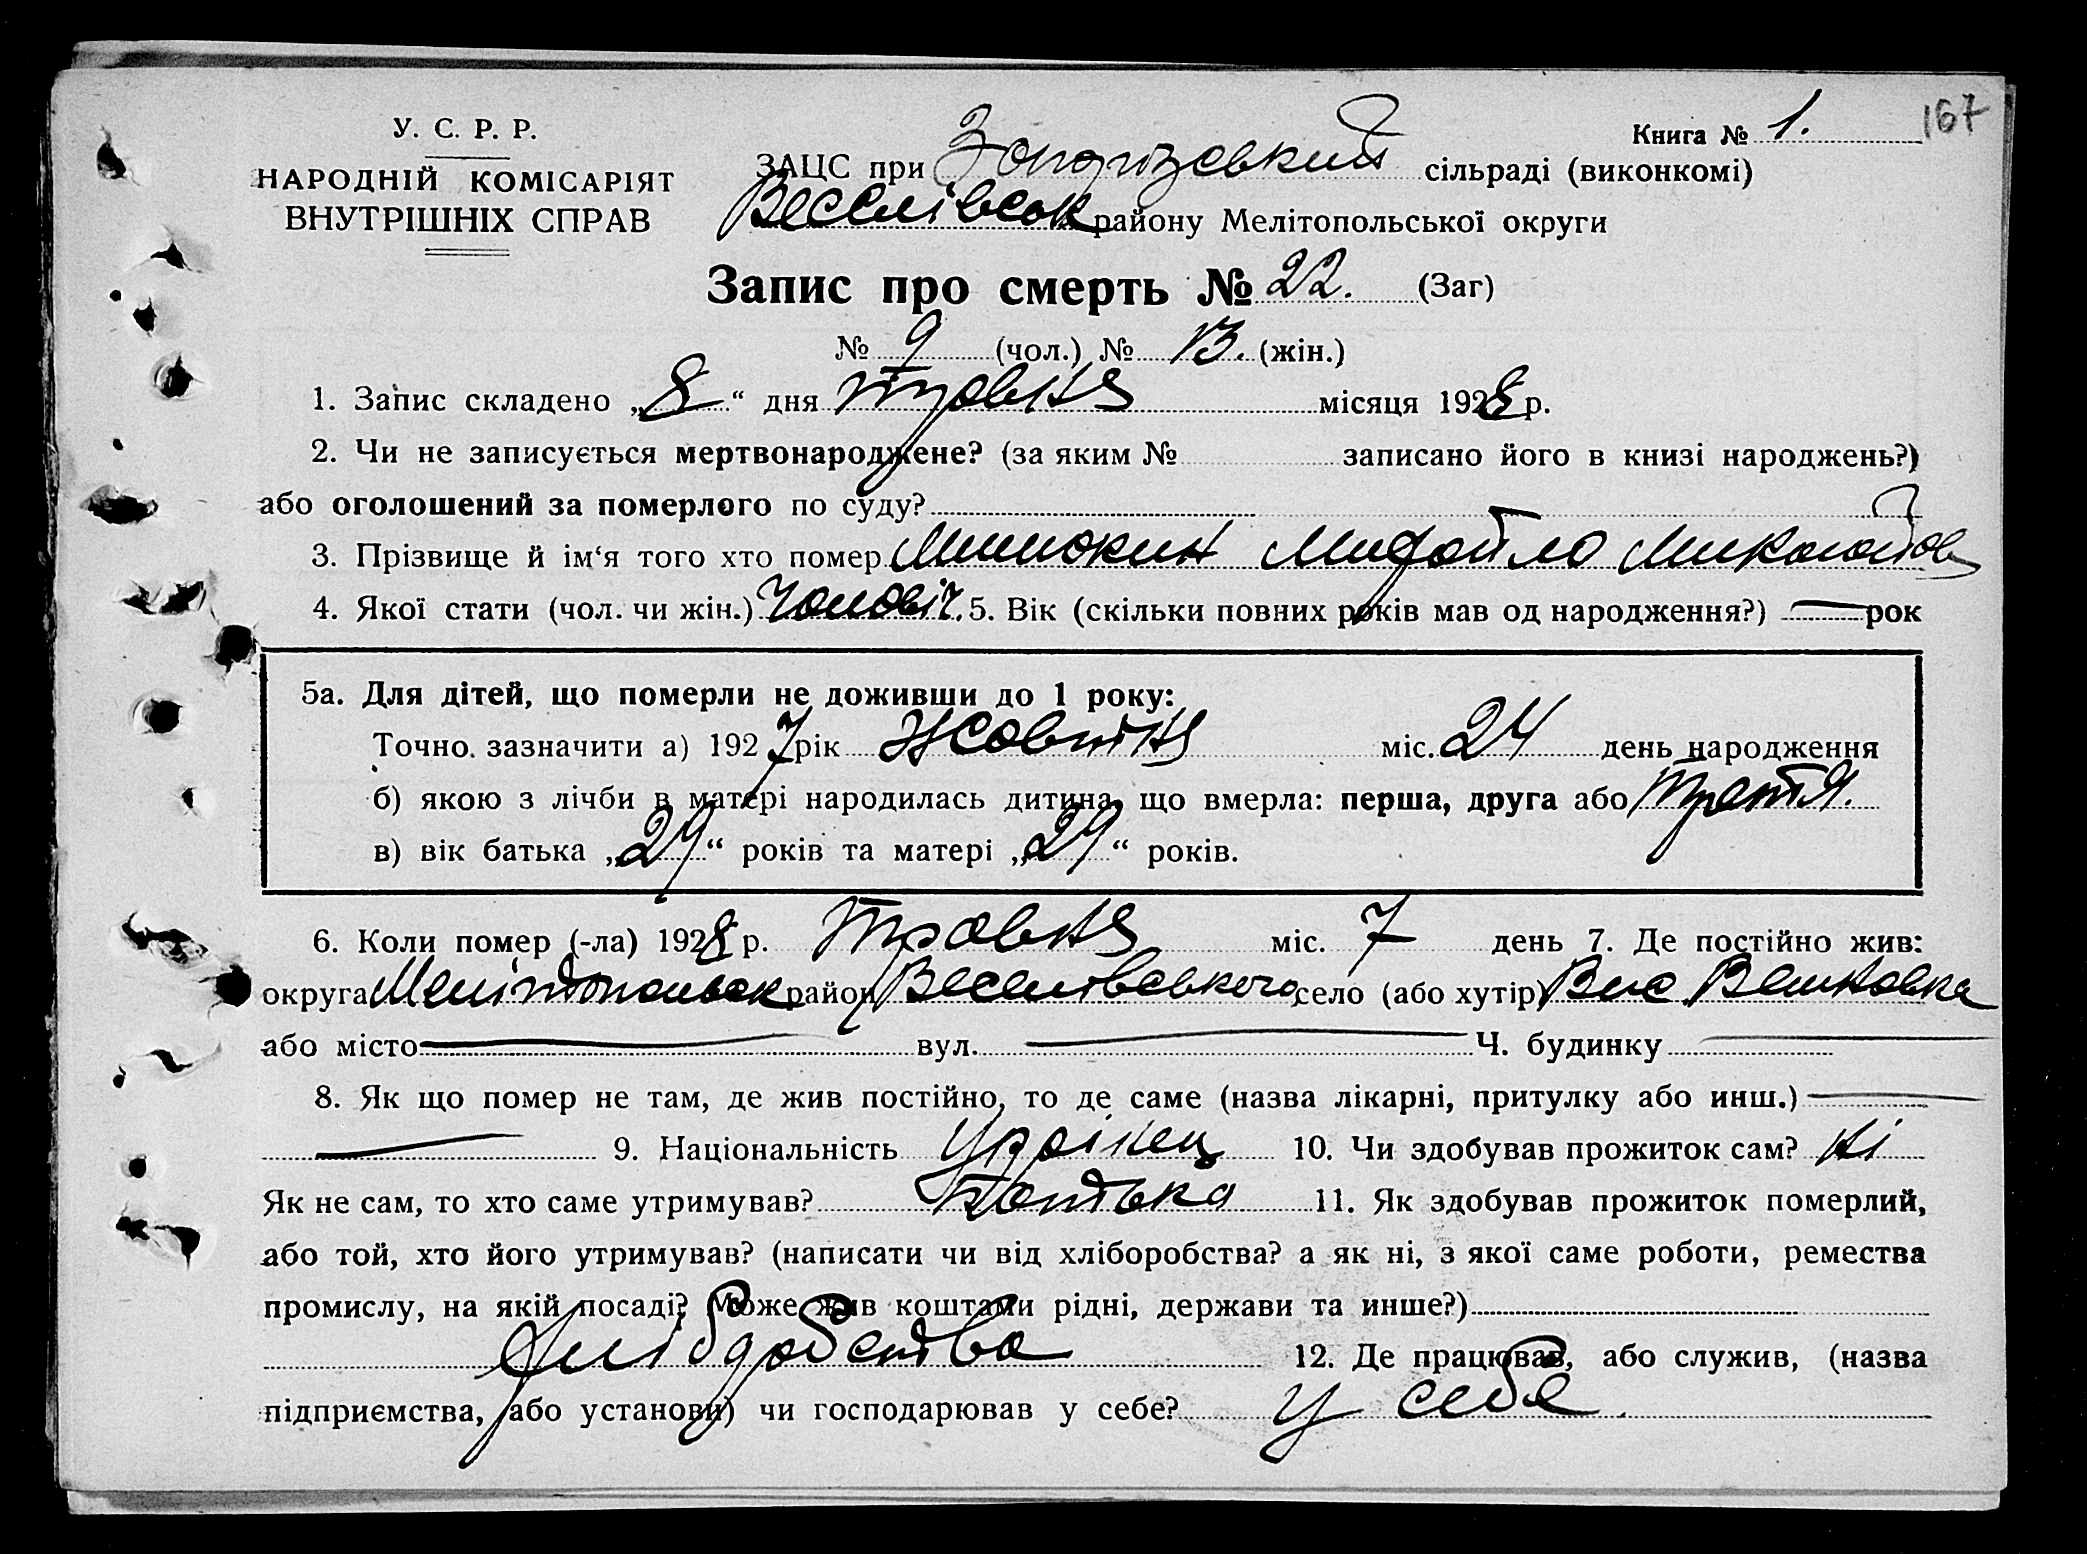 167
У. С. Р. Р.
НАРОДНІЙ КОМІСАРІЯТ
ВНУТРІШНІХ СПРАВ
Книга № 1.
ЗАЦС при сільраді (виконкомі)
Веселівськ району Мелітопольської округи
Запис про смерть № 22. (Заг)
№ 9 (чол.) № 13. (жін.)
1. Запис складено „8“ дня травня місяця 1928 р.
2. Чи не записується мертвонароджене? (за яким № записано його в книзі народжень?)
або оголошений за померлого по суду?
3. Прізвище й ім‘я того хто помер Мишокин Михайло Миколайов
4. Якої стати (чол. чи жін.) Чоловіч. 5. Вік (скільки повних років мав од народження?) — рок
5а. Для дітей, що померли не доживши до 1 року:
Точно зазначити а) 1927 рік Жовтня міс. 24 день народження
б) якою з лічби в матері народилась дитина, що вмерла: перша, друга або третя.
в) вік батька „29“ років та матері „29“ років.
6. Коли помер (-ла) 1928 р. Травня міс. 7 день 7. Де постійно жив:
округа Мелітопольськ район Веселівського село (або хутір)
або місто — вул. — Ч. будинку —
8. Як що помер не там, де жив постійно, то де саме (назва лікарні, притулку або инш.) —
— 9. Національність Украінец 10. Чи здобував прожиток сам? Ні
Як не сам, то хто саме утримував? Батько 11. Як здобував прожиток померлий,
або той, хто його утримував? (написати чи від хліборобства? а як ні, з якої саме роботи, ремества
промислу, на якій посаді? Може жив коштами рідні, держави та инше?)
Хліборобства 12. Де працював, або служив, (назва
підприємства, або установи) чи господарював у себе? у себе